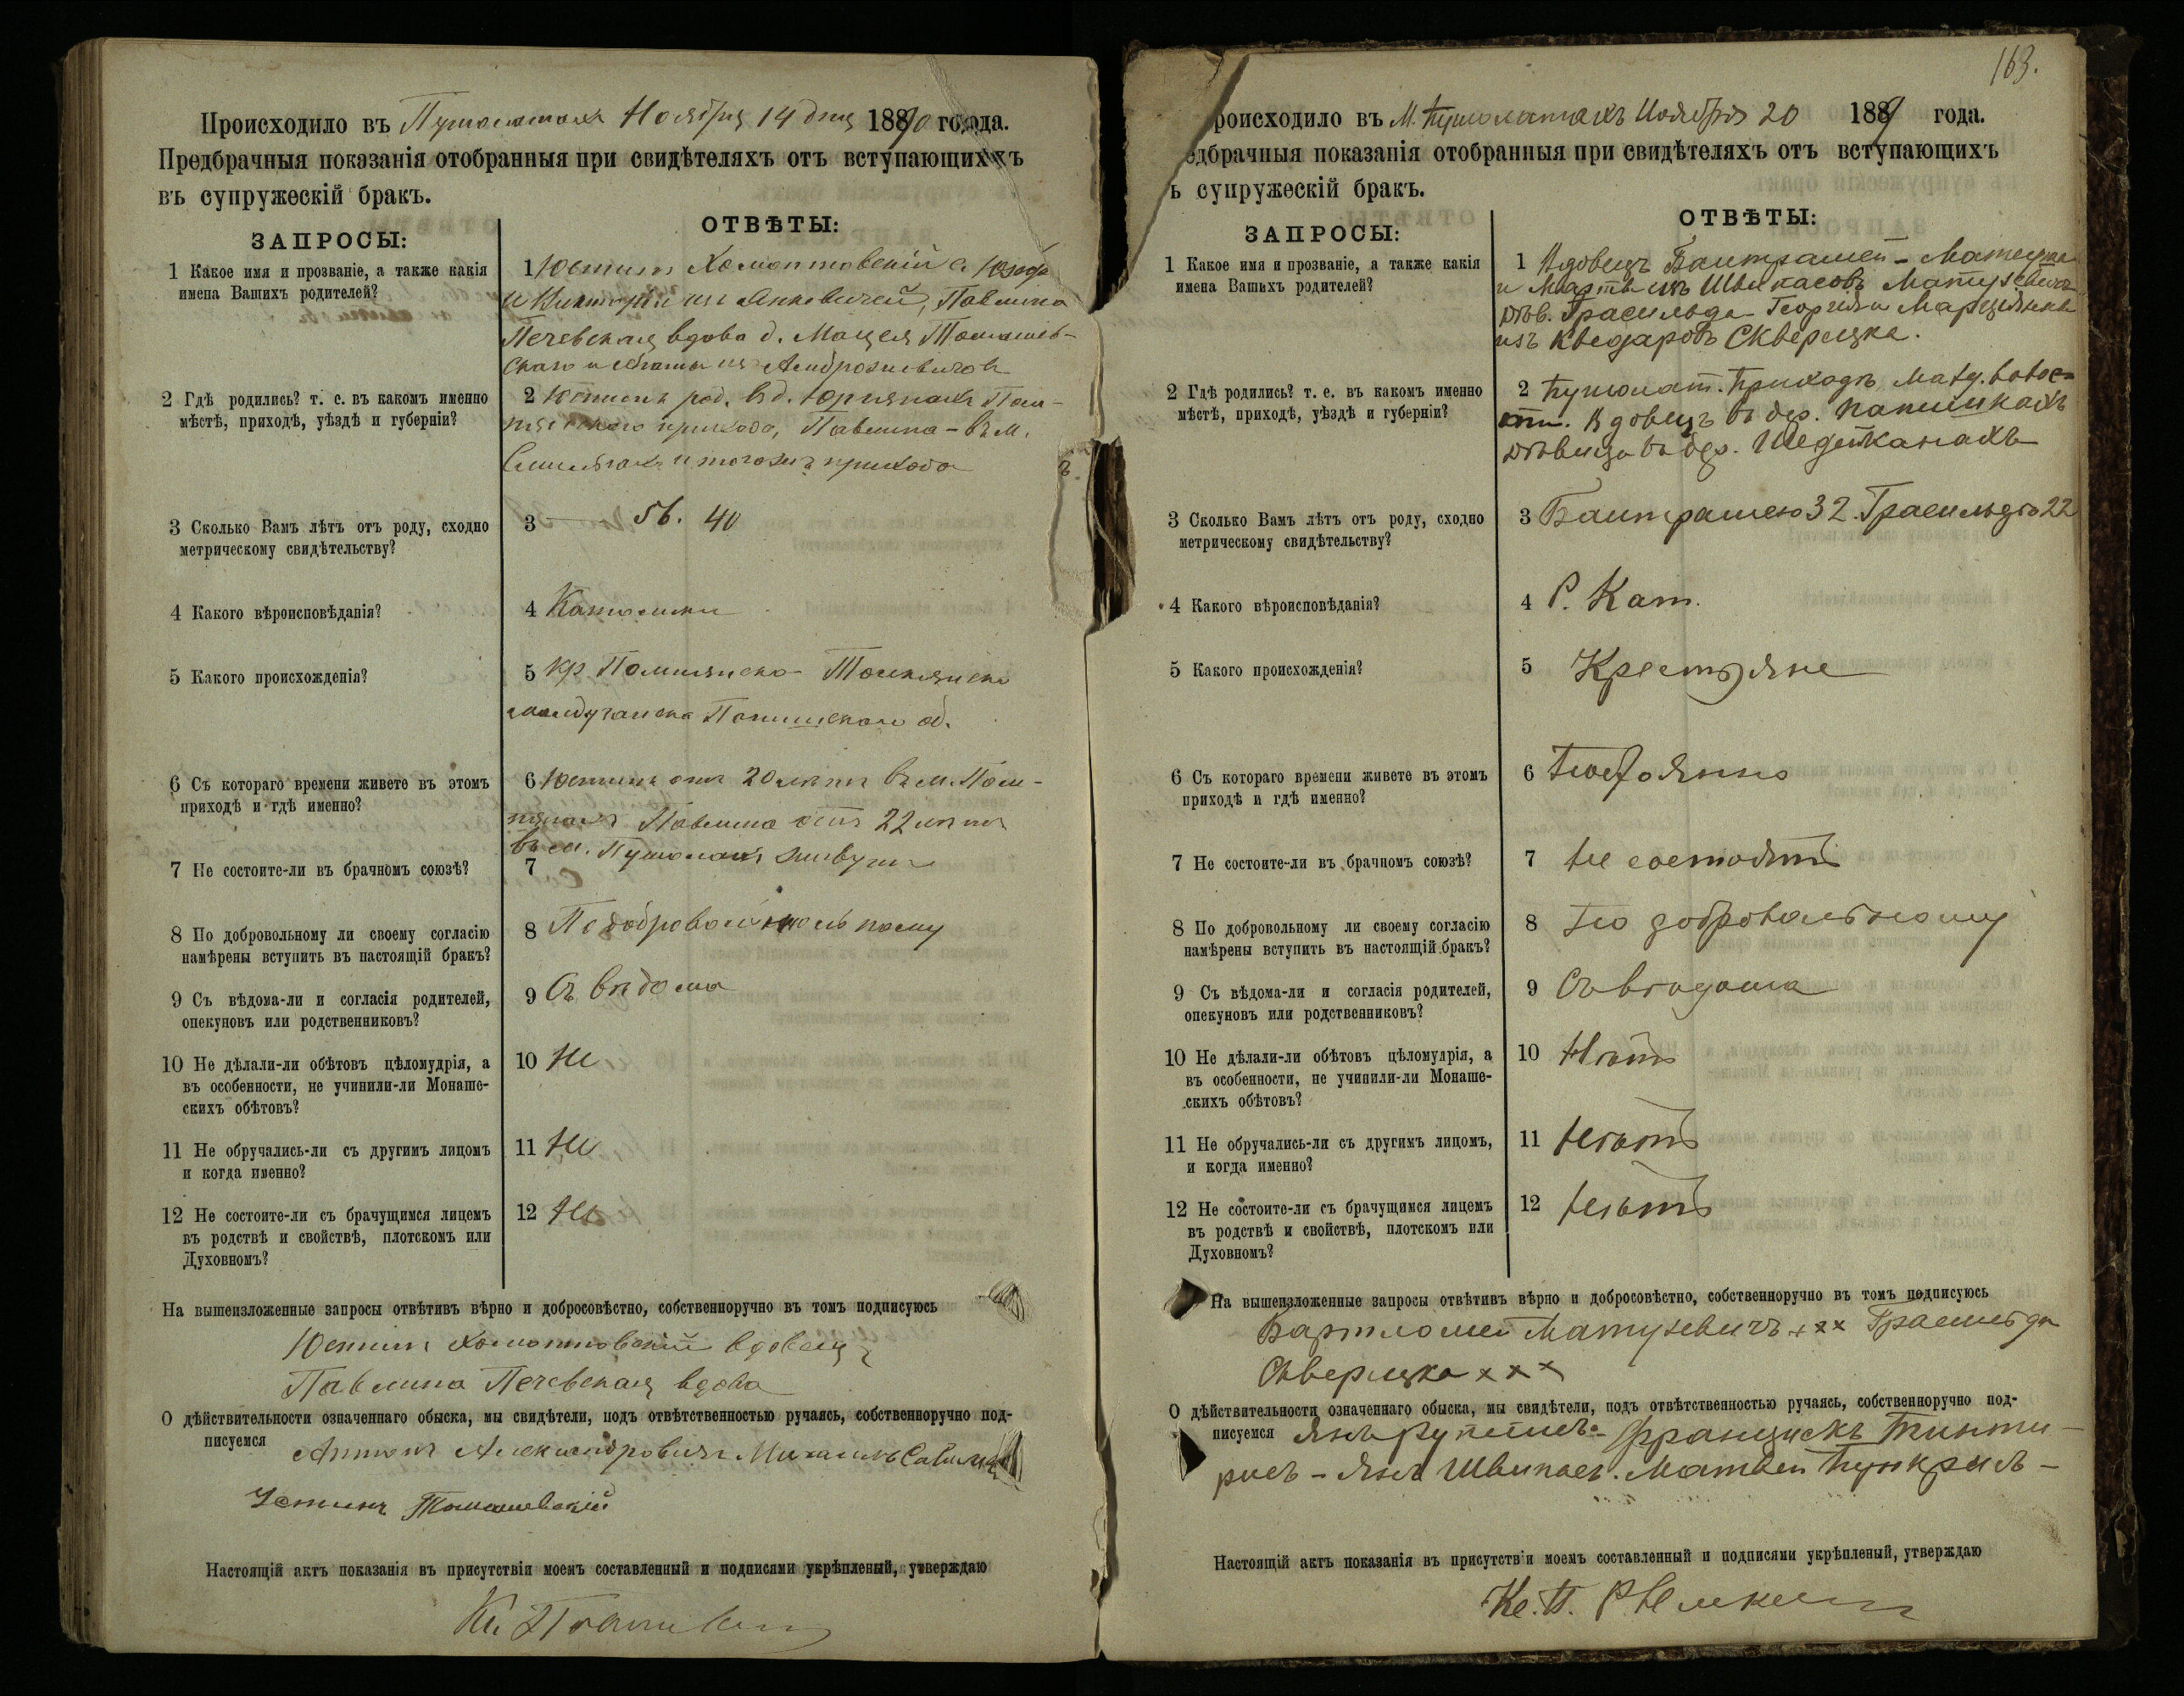 Происходило въ Пушолатахъ Ноября 14 дня 1890 года.
Предбрачныя показанія отобранныя при свидѣтеляхъ отъ вступающихъ
въ супружескій бракъ.
ЗАПРОСЫ:
ОТВѢТЫ:
1 Какое имя и прозваніе, а также какія
имена Вашихъ родителей?
1 Юстинъ с. Юзефа
и Викторіи изъ Павлина
вдова д.
и изъ
2 Гдѣ родились? т. е. въ какомъ именно
мѣстѣ, приходѣ, уѣздѣ и губерніи?
2 Юстинъ род. въ д.
прихода, Павлина – въ м.
и тогожъ прихода
3 Сколько Вамъ лѣтъ отъ роду, сходно
метрическому свидѣтельству?
3 56. 40
4 Какого вѣроисповѣданія?
4 Католики
5 Какого происхожденія?
5 кр
об.
6 Съ котораго времени живете въ этомъ
приходѣ и гдѣ именно?
6 Юстинъ отъ 20 лѣтъ въ м. Пом-
Павлина отъ 22 лѣтъ
въ м.
7 Не состоите-ли въ брачномъ союзѣ?
7
8 По добровольному ли своему согласію
намѣрены вступить въ настоящій бракъ?
8 По
9 Съ вѣдома-ли и согласія родителей,
опекуновъ или родственниковъ?
9 Съ вѣдома
10 Не дѣлали-ли обѣтовъ цѣломудрія, а
въ особенности, не учинили-ли Монаше-
скихъ обѣтовъ?
10 Не
11 Не обручались-ли съ другимъ лицомъ
и когда именно?
11 Не
12 Не состоите-ли съ брачущимся лицемъ
въ родствѣ и свойствѣ, плотскомъ или
Духовномъ?
12 Не
На вышеизложенные запросы отвѣтивъ вѣрно и добросовѣстно, собственноручно въ томъ подписуюсь
Юстинъ вдовецъ
Павлина вдова
О дѣйствительности означеннаго обыска, мы свидѣтели, подъ отвѣтственностью ручаясь, собственноручно под-
писуемся Антонъ Александровичъ Михаилъ
Устинъ Томашевскій
Настоящій актъ показанія въ присутствіи моемъ составленный и подписями укрѣпленый, утверждаю
Кс.
163.
роисходило въ М. Пушолатахъ Ноября 20 188 года.
едбрачныя показанія отобранныя при свидѣтеляхъ отъ вступающихъ
ъ супружескій бракъ.
ЗАПРОСЫ:
ОТВѢТЫ:
1 Какое имя и прозваніе, а также какія
имена Вашихъ родителей?
1 Вдовецъ Балтрамей – Матеуша
и Марты изъ Швилпасовъ Матузевичъ
дѣв. Грасильда – Георгія и Марціянны
изъ Кведаровъ Скверецка.
2 Гдѣ родились? т. е. въ какомъ именно
мѣстѣ, приходѣ, уѣздѣ и губерніи?
2 Пушолат. приходѣ
Вдовецъ въ дер.
дѣвица въ дер. Шедейканахъ
3 Сколько Вамъ лѣтъ отъ роду, сходно
метрическому свидѣтельству?
3 Балтрамею 32. Грасильдѣ 22
4 Какого вѣроисповѣданія?
4 Р. Кат.
5 Какого происхожденія?
5 Крестьяне
6 Съ котораго времени живете въ этомъ
приходѣ и гдѣ именно?
6 Постоянно
7 Не состоите-ли въ брачномъ союзѣ?
7 Не состоятъ
8 По добровольному ли своему согласію
намѣрены вступить въ настоящій бракъ?
8 По добровольному
9 Съ вѣдома-ли и согласія родителей,
опекуновъ или родственниковъ?
9 Съ вѣдома
10 Не дѣлали-ли обѣтовъ цѣломудрія, а
въ особенности, не учинили-ли Монаше-
скихъ обѣтовъ?
10 Нѣтъ
11 Не обручались-ли съ другимъ лицомъ,
и когда именно?
11 Нѣтъ
12 Не состоите-ли съ брачущимся лицемъ
въ родствѣ и свойствѣ, плотскомъ или
Духовномъ?
12 Нѣтъ
На вышеизложенные запросы отвѣтивъ вѣрно и добросовѣстно, собственноручно въ томъ подписуюсь
Бартломей Матузевичъ +×× Грасильда
Скверецка ×××
О дѣйствительности означеннаго обыска, мы свидѣтели, подъ отвѣтственностью ручаясь, собственноручно под-
писуемся Янъ Францискъ
Янъ Швилпасъ. Матвей
Настоящій актъ показанія въ присутствіи моемъ составленный и подписями укрѣпленый, утверждаю
Кс.